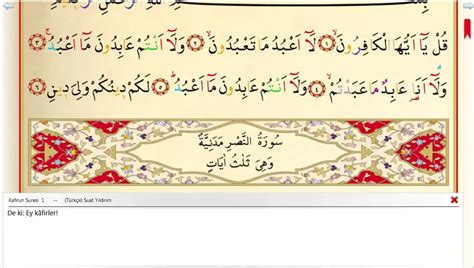 قُلْ يَٓا اَيُّهَا الْكَافِرُونَۙ ﴿١﴾ لَٓا اَعْبُدُ مَا تَعْبُدُونَۙ ﴿٢﴾ وَلَٓا اَنْتُمْ عَابِدُونَ مَٓا اَعْبُدُۚ ﴿٣﴾
وَلَٓا اَنَا۬ عَابِدٌ مَا عَبَدْتُمْۙ ﴿٤﴾ وَلَٓا اَنْتُمْ عَابِدُونَ مَٓا اَعْبُدُۜ ﴿٥﴾ لَكُمْ دِينُكُمْ وَلِيَ دِينِ ﴿٦﴾
سُورَةُ النَّصْرِ مَدَنِيَّةٌ
وَهِيَ ثَلٰثُ اٰيَاتٍ
Kafirun Suresi 1 -- (Türkçe) Suat Yıldırım
De ki: Ey kâfirler!